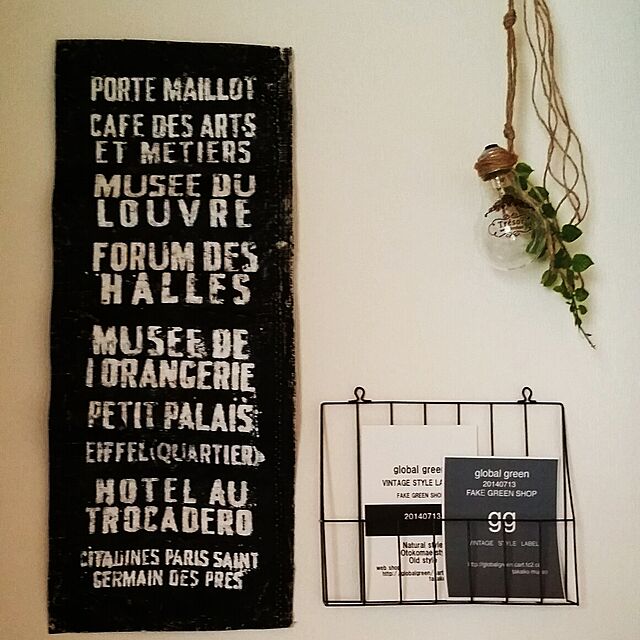 PORTE MAILLOT
CAFE DES ARTS
ET METIERS
MUSEE DU
LOUVRE
FORUM DES
HALLES
MUSEE DE
lORANGERIE
PETIT PALAÏS
EIFFEL(QUARTIER)
HOTEL AU
TROCADERO
CITADINES PARIS SAINT
GERMAIN DES PRES
Trésor
global green
VINTAGE STYLE LA
FAKE GREEN SHO
20140713
Natural style
Otokomae st
Old style
web shop
global green
20140713
FAKE GREEN SHOP
gg
VINTAGE STYLE LABEL